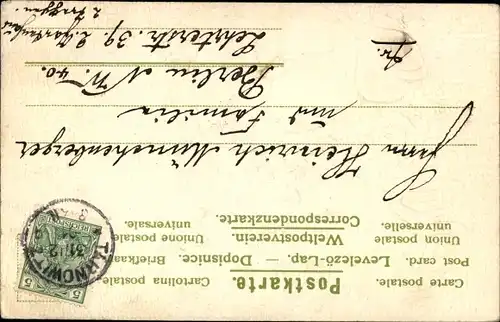 Postkarte.
Carte postale Cartolina postale
Post card. — Levelező-Lap. — Dopisnice. — Briefkaart.
Union postale universelle. Weltpostverein. Unione postale universale.
Correspondenzkarte.
5 5
TARNOWITZ
31.12
Herrn Heinrich Münchenberger
und Familie
Berlin N.W. 40.
Lehrterstr. 39.
fr.